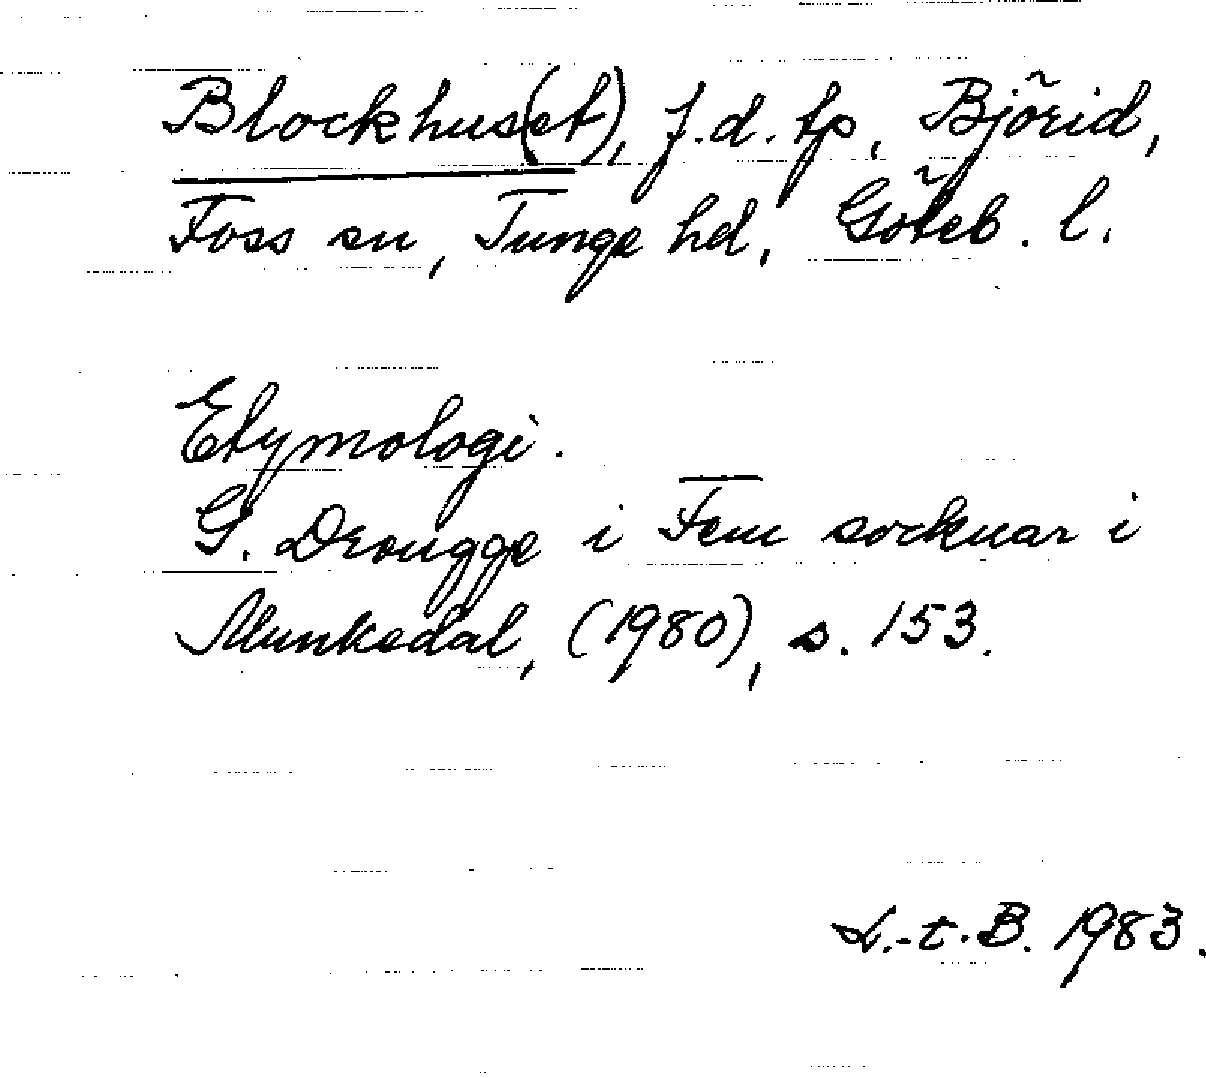 Blockhus(et), f.d. tp, Björid,
Foss sn, Tunge hd, Göteb. l.
Etymologi.
G. Drougge i Fem socknar i
Munkedal, (1980), s. 153.
L.-t. B. 1983.